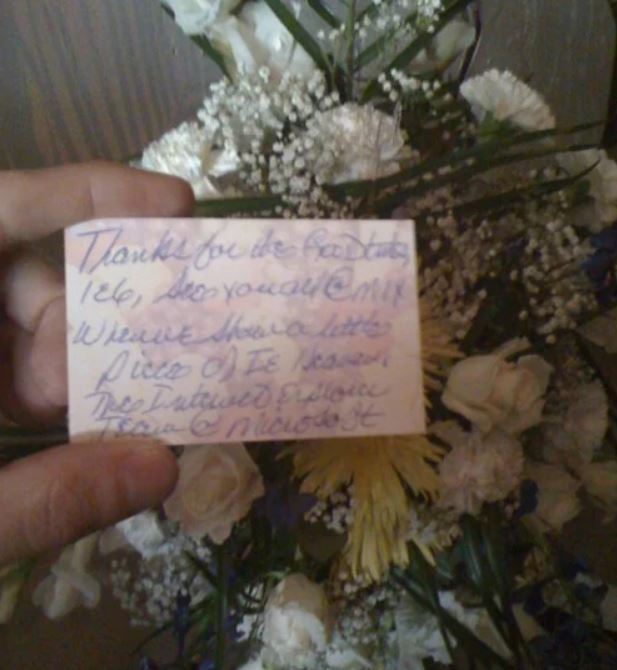 Thanks for the Good times,
IE6, See you all @ MIX
When we show a little
Piece of IE Heaven,
The Internet Explorer
Team @ Microsoft